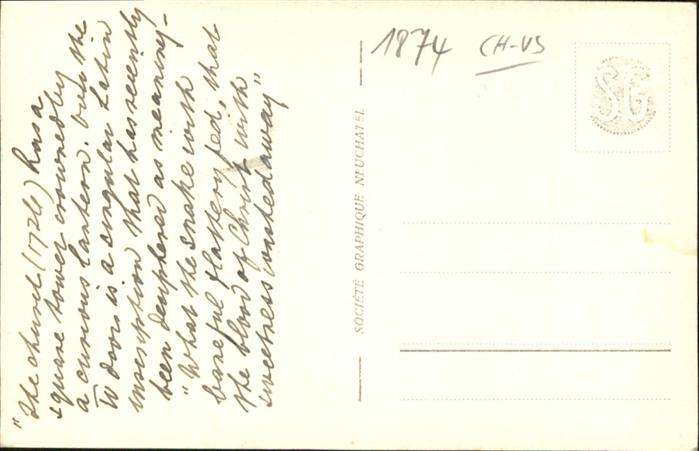 "The church (1726) has a
square tower crowned by
a curious lantern. Over the
W door is a singular Latin
inscription that has recently
been deciphered as meaning—
"What the snake with
baneful flattery fed, that
the blood of Christ with
sweetness washed away"
1874 CH-VS
SOCIÉTÉ GRAPHIQUE NEUCHATEL
SG